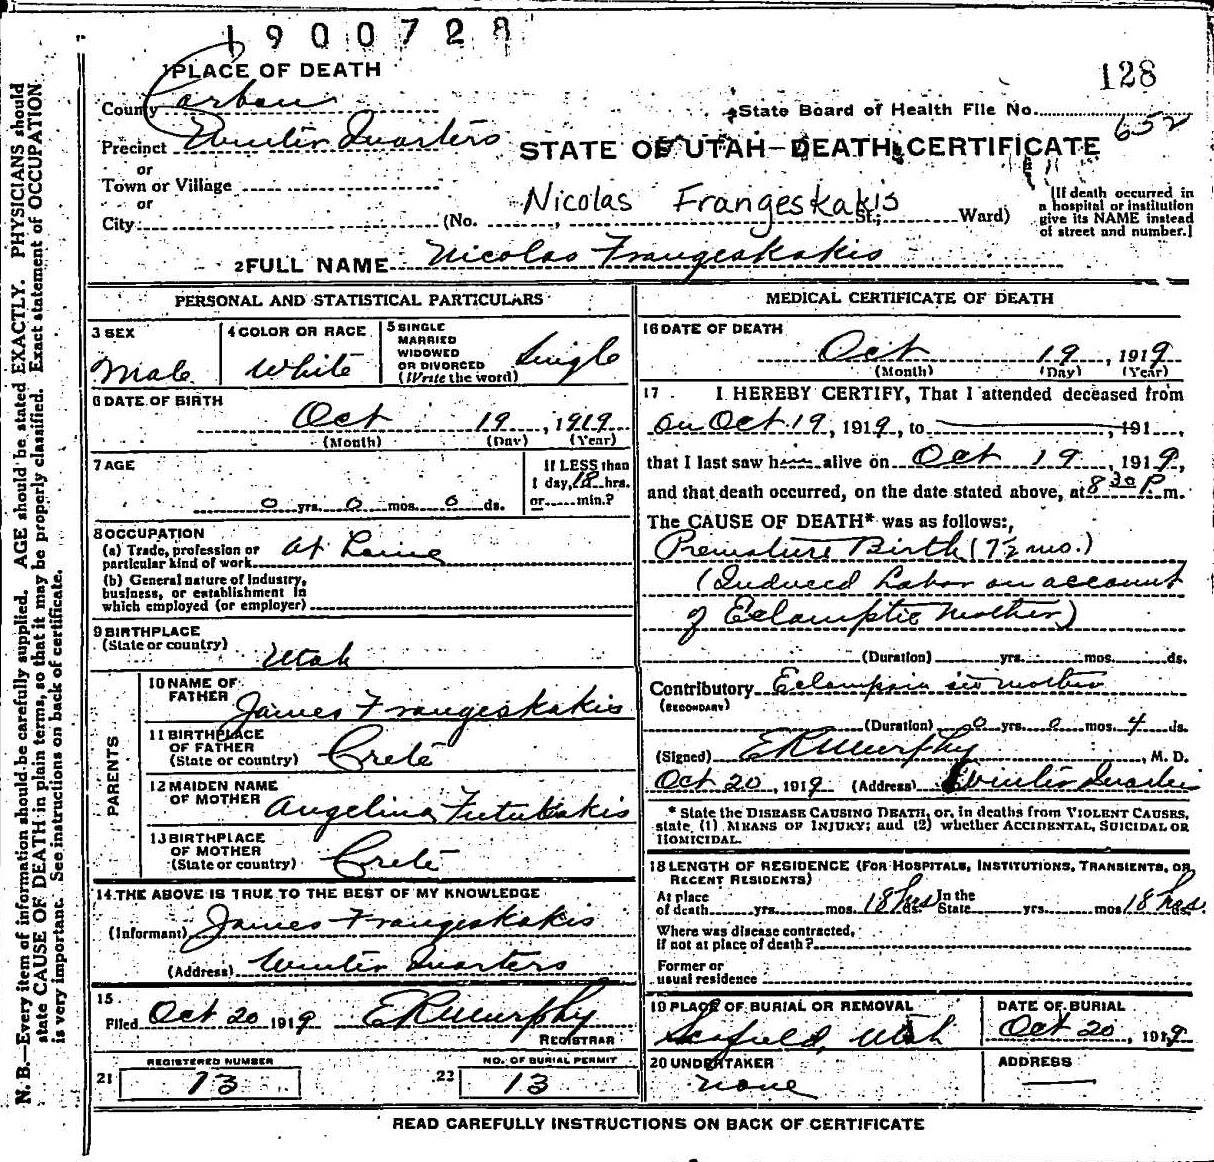 1900728
PLACE OF DEATH
128
County Carbon
State Board of Health File No.
652
Precinct Winter Quarters
STATE OF UTAH—DEATH CERTIFICATE
or
Town or Village
or
City (No. , St.; Ward)
Nicolas Frangeskakis
[If death occurred in
a hospital or institution
give its NAME instead
of street and number.]
2 FULL NAME Nicolas Frangeskakis
PERSONAL AND STATISTICAL PARTICULARS
3 SEX
Male
4 COLOR OR RACE
White
5 SINGLE
MARRIED
WIDOWED
OR DIVORCED
(Write the word) Single
6 DATE OF BIRTH
Oct 19, 1919
(Month) (Day) (Year)
7 AGE
0 yrs. 0 mos. 0 ds.
If LESS than
1 day, 18 hrs.
or min.?
8 OCCUPATION
(a) Trade, profession or
particular kind of work At Home
(b) General nature of industry,
business, or establishment in
which employed (or employer)
9 BIRTHPLACE
(State or country)
Utah
PARENTS
10 NAME OF
FATHER
James Frangeskakis
11 BIRTHPLACE
OF FATHER
(State or country) Crete
12 MAIDEN NAME
OF MOTHER Angelina Futukakis
13 BIRTHPLACE
OF MOTHER
(State or country) Crete
14 THE ABOVE IS TRUE TO THE BEST OF MY KNOWLEDGE
(Informant) James Frangeskakis
(Address) Winter Quarters
15
Filed Oct 20 1919 ERMurphy
REGISTRAR
REGISTERED NUMBER
21 13
NO. OF BURIAL PERMIT
22 13
MEDICAL CERTIFICATE OF DEATH
16 DATE OF DEATH
Oct 19, 1919
(Month) (Day) (Year)
17 I HEREBY CERTIFY, That I attended deceased from
on Oct 19, 1919, to , 191
that I last saw him alive on Oct 19, 1919,
and that death occurred, on the date stated above, at 8 30 P. m.
The CAUSE OF DEATH* was as follows:
Premature Birth (7½ mo.)
(Induced Labor on account
of Eclamptic Mother)
(Duration) yrs. mos. ds.
Contributory Eclampsia in mother
(SECONDARY)
(Duration) 0 yrs. 0 mos. 4 ds.
(Signed) ERMurphy, M. D.
Oct 20, 1919 (Address) Winter Quarters
* State the DISEASE CAUSING DEATH, or, in deaths from VIOLENT CAUSES,
state (1) MEANS OF INJURY; and (2) whether ACCIDENTAL, SUICIDAL OR
HOMICIDAL.
18 LENGTH OF RESIDENCE (FOR HOSPITALS, INSTITUTIONS, TRANSIENTS, OR
RECENT RESIDENTS)
At place
of death yrs. mos. 18 hrs ds. In the
State yrs. mos. 18 hrs. ds.
Where was disease contracted,
if not at place of death?
Former or
usual residence
19 PLACE OF BURIAL OR REMOVAL
Scofield, Utah
DATE OF BURIAL
Oct 20, 1919
20 UNDERTAKER
none
ADDRESS
READ CAREFULLY INSTRUCTIONS ON BACK OF CERTIFICATE
N. B.—Every item of information should be carefully supplied. AGE should be stated EXACTLY. PHYSICIANS should
state CAUSE OF DEATH in plain terms, so that it may be properly classified. Exact statement of OCCUPATION
is very important. See instructions on back of certificate.